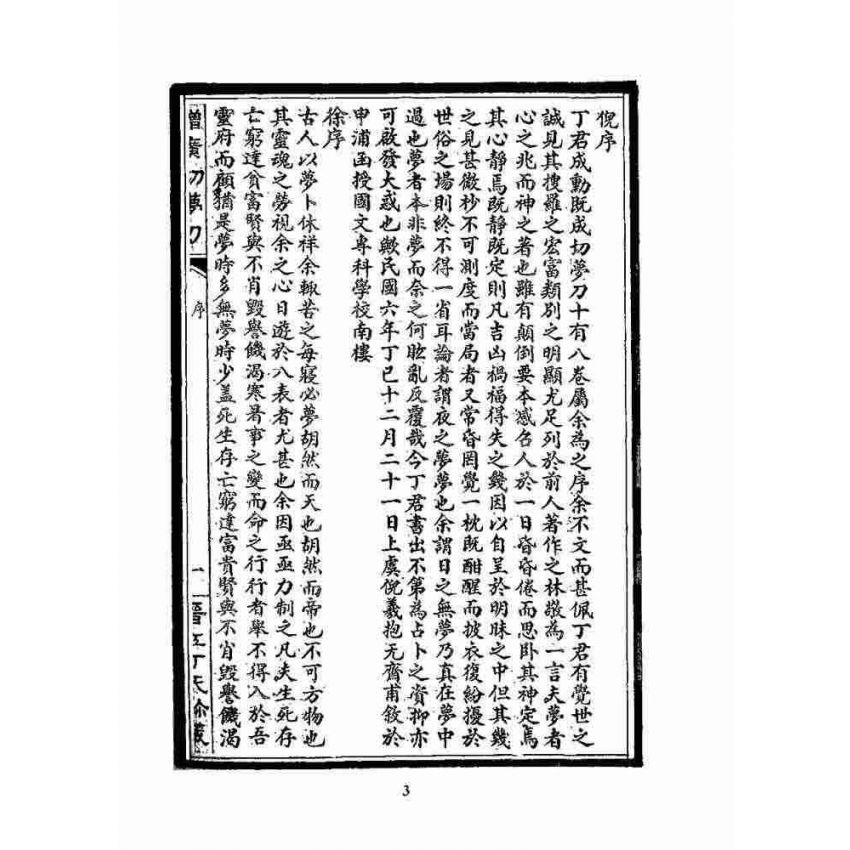 倪序
丁君成勳既成切夢刀十有八卷屬余為之序余不文而甚佩丁君有覺世之
誠見其搜羅之宏富類別之明顯尤足列於前人著作之林敬為一言夫夢者
心之兆而神之著也雖有顛倒要本感召人於一日昏昏倦而思卧其神定焉
其心靜焉既靜既定則凡吉凶禍福得失之幾因以自呈於明昧之中但其幾
之見甚微杪不可測度而當局者又常昏罔覺一枕既酣醒而披衣復紛擾於
世俗之場則終不得一省耳論者謂夜之夢夢也余謂日之無夢乃真在夢中
過也夢者本非夢而余之何眩亂反覆哉今丁君書出不第為占卜之資抑亦
可啟發大惑也歟民國六年丁巳十二月二十一日上虞倪羲抱无齋甫敘於
申浦函授國文專科學校南樓
徐序
古人以夢卜休祥余輒苦之每寢必夢胡然而天也胡然而帝也不可方物也
其靈魂之勞視余之心日遊於八表者尤甚也余因亟亟力制之凡夫生死存
亡窮達貧富賢與不肖毀譽饑渴寒暑事之變而命之行行者舉不得入於吾
靈府而顧猶是夢時多無夢時少盖死生存亡窮達富貴賢與不肖毀譽饑渴
增廣切夢刀
序
一
晉江丁氏
3